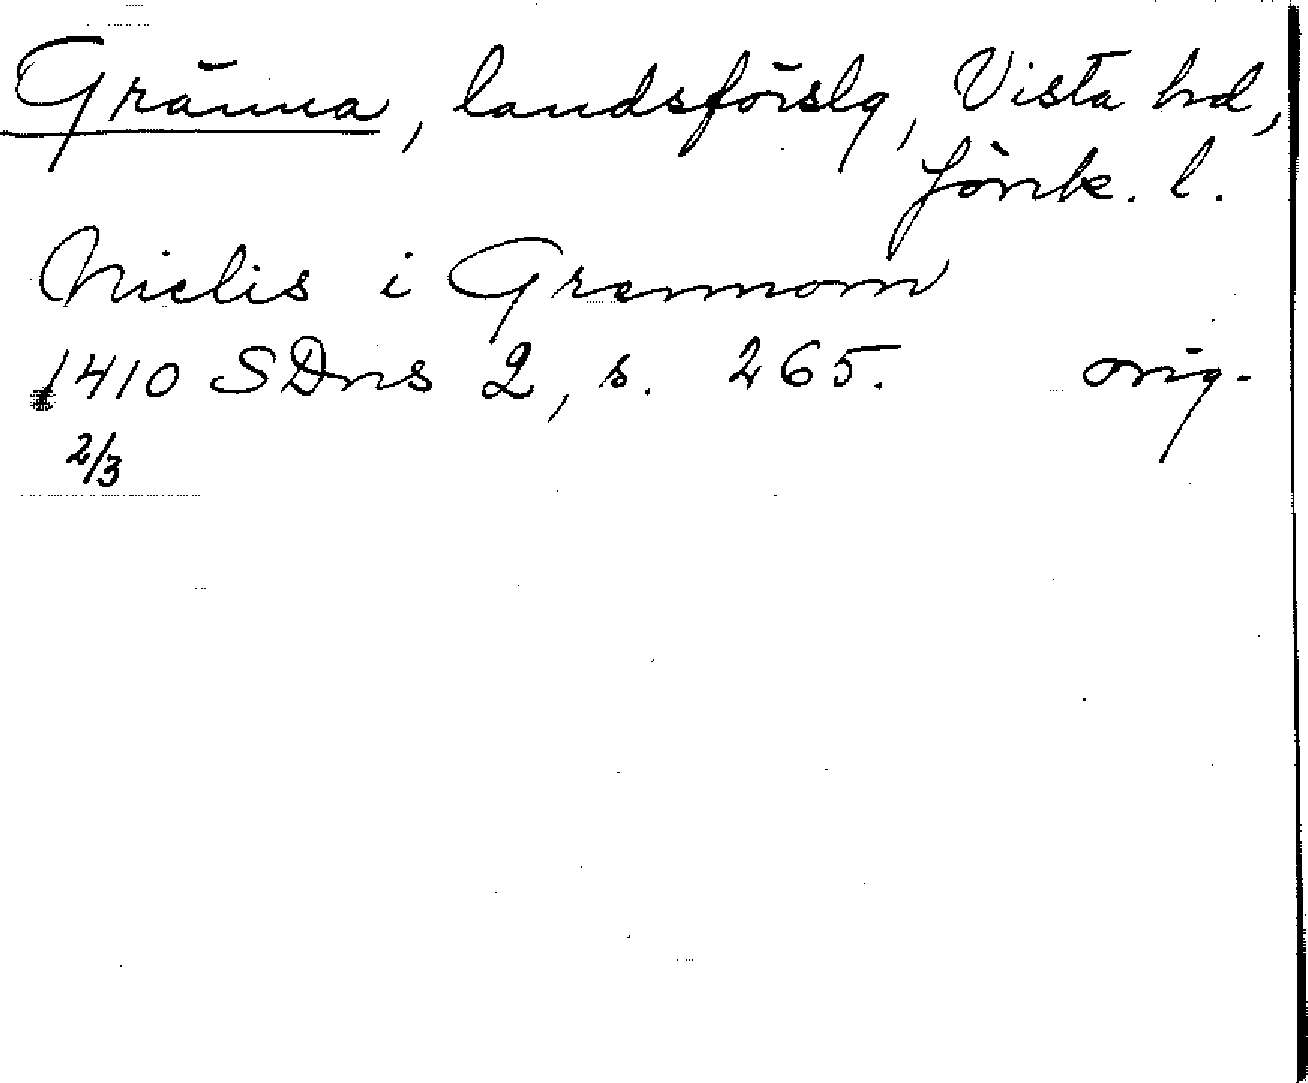 Gränna, landsförslg, Vista hd,
Jönk. l.
Nielis i Grennom
1410 SDns 2, s. 265. orig.
2/3